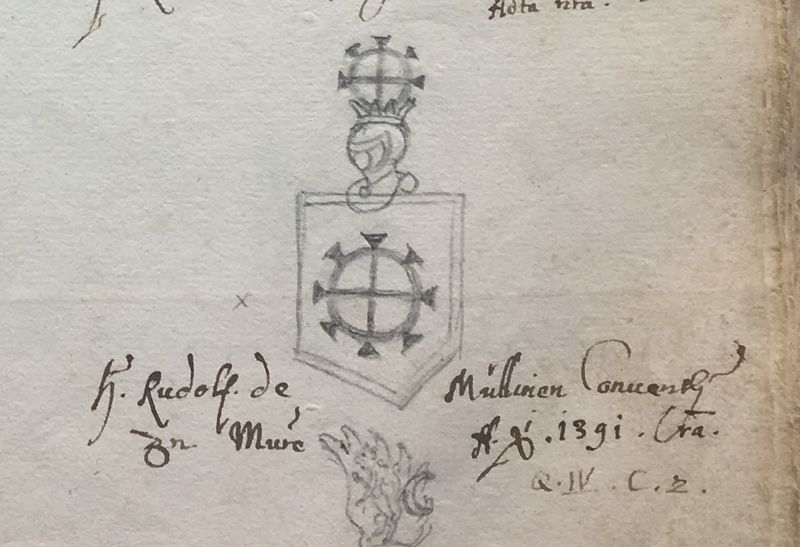 Acta nra.
H. Rudolf. de Müllinen Conuentz
Zu Mure A. .1391. Lra.
Q.IV.C.2.